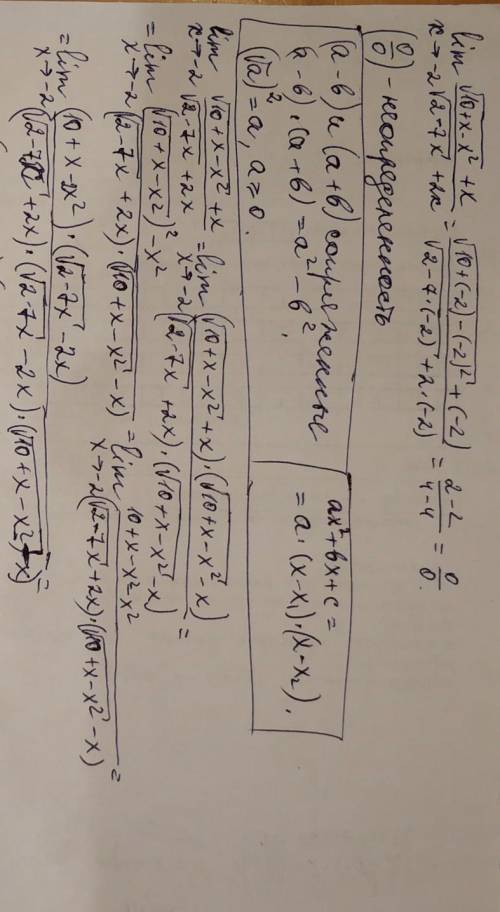 lim x→-2 (√(10+x-x²) + x)/(√(2-7x) + 2x) = (√(10+(-2)-(-2)²) + (-2))/(√(2-7·(-2)) + 2·(-2)) = (2-2)/(4-4) = 0/0.
(0/0) - неопределенность
(a-b) и (a+b) сопряженные
(a-b)·(a+b) = a² - b².
(√a)² = a, a≥0.
ax²+bx+c =
= a·(x-x₁)·(x-x₂).
lim x→-2 (√(10+x-x²) + x)/(√(2-7x) + 2x) = lim x→-2 ((√(10+x-x²) + x)·(√(10+x-x²) - x))/((√(2-7x) + 2x)·(√(10+x-x²) - x)) =
= lim x→-2 ((√(10+x-x²))² - x²)/((√(2-7x) + 2x)·(√(10+x-x²) - x)) = lim x→-2 (10+x-x²-x²)/((√(2-7x) + 2x)·(√(10+x-x²) - x)) =
= lim x→-2 ((10+x-2x²)·(√(2-7x) - 2x))/((√(2-7x) + 2x)·(√(2-7x) - 2x)·(√(10+x-x²) - x)) =